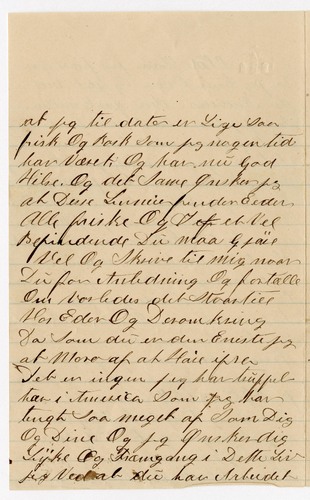 at jeg til dater er Lige saa
frisk Og Rask som jeg nogen tid
har Været Og har nu God
Helse. Og det Same Ønsker jeg
at Disse Linnier finder Eder
Alle friske Og I et Vel
Befindende Du maa Gjøre
Vel Og Skrive til mig naar
Du faar Anledning Og fortælle
Om Vorledes det Staar til
Hos Eder Og Deromkring
Da Som du er den Eneste jeg
at Moro af at Høre ifra
Det er ingen jeg har træffet
her i America Som jeg har
tengt Saa meget af Som Dig
Og Dine Og jeg Ønsker dig
Lykke Og Framgang i Dette Liv
jeg Ved at du har Arbeidet